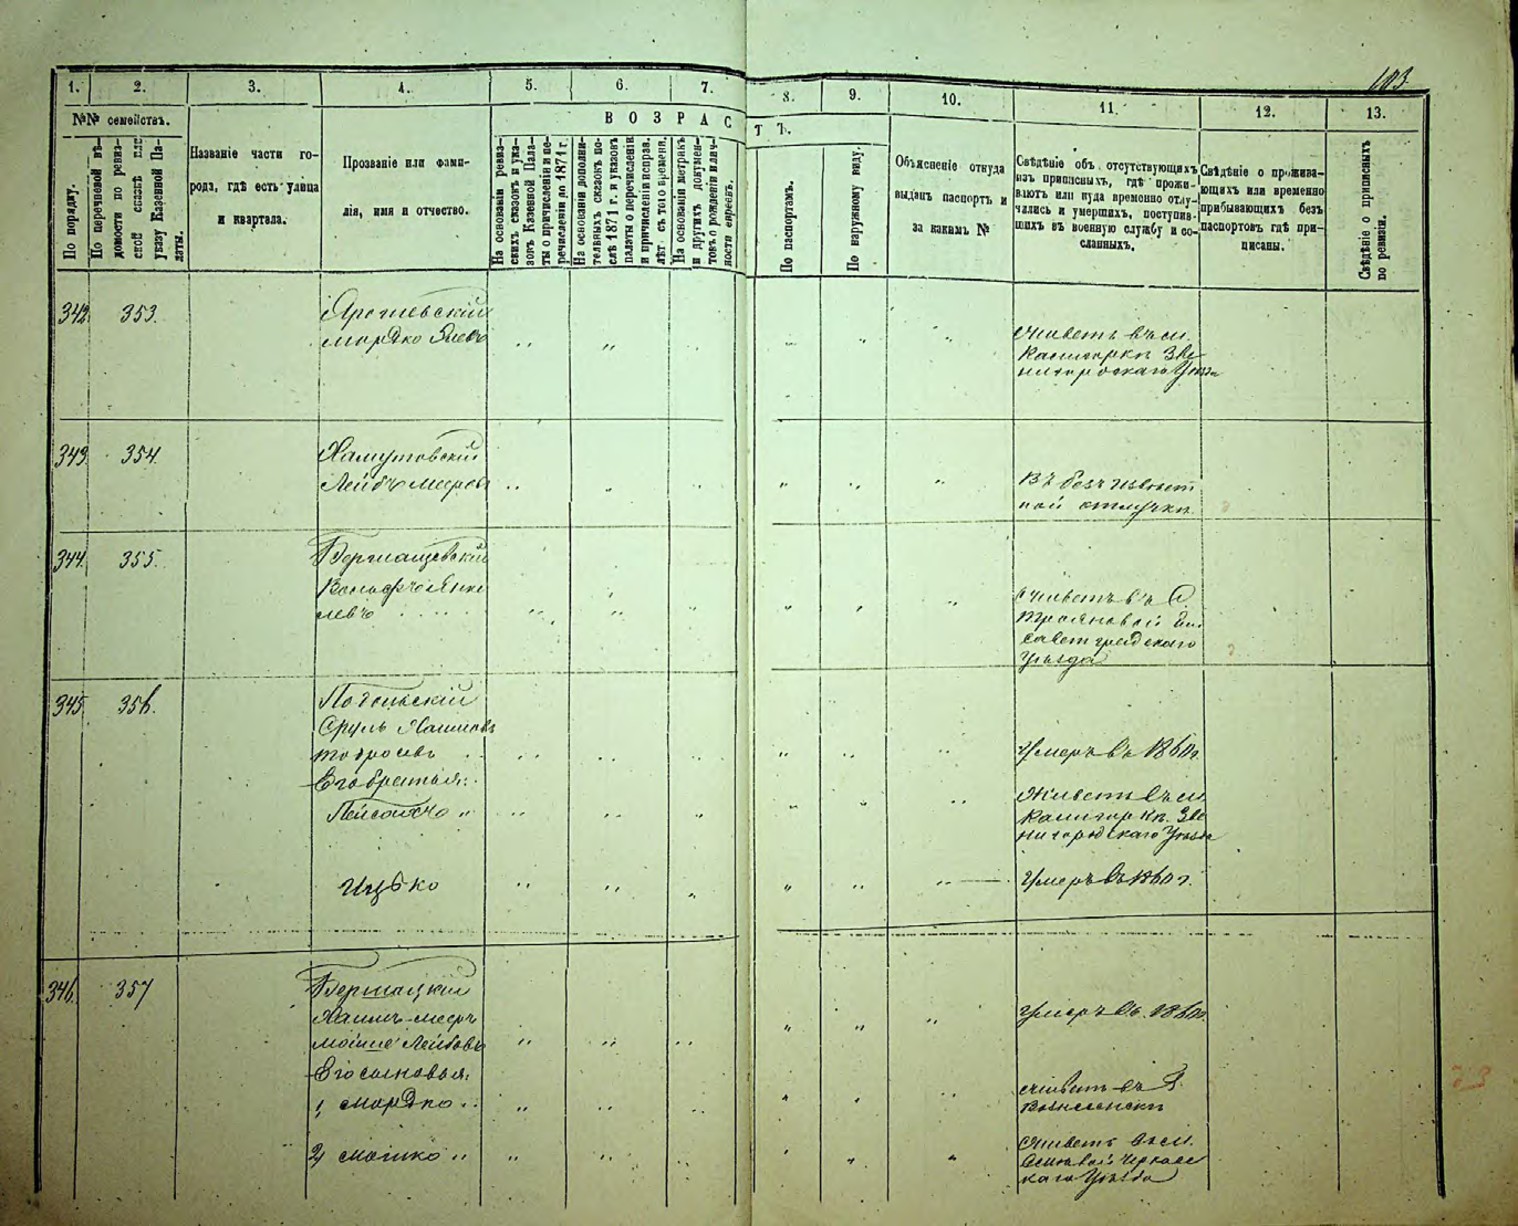 103.
1. 2. 3. 4. 5. 6. 7. 8. 9. 10. 11. 12. 13.
№№ семействъ.
По порядку.
По перечневой вѣ-
домости по ревиз-
ской сказкѣ или
указу Казенной Па-
латы.
Названіе части го-
рода, гдѣ есть улица
и квартала.
Прозваніе или фами-
лія, имя и отчество.
ВОЗРАСТЪ.
На основаніи ревиз-
скихъ сказокъ и ука-
зовъ Казенной Пала-
ты о причисленіи и пе-
речисленіи до 1871 г.
На основаніи дополни-
тельныхъ сказокъ по-
слѣ 1871 г. и указовъ
палаты о перечисленіи
и причисленіи исправ.
лѣт съ того времени.
На основаніи метрикъ
и другихъ докумен-
товъ о рожденіи и лич-
ности евреевъ.
По паспортамъ.
По наружному виду.
Объясненіе откуда
выданъ паспортъ и
за какимъ №
Свѣдѣніе объ отсутствующихъ
изъ приписныхъ, гдѣ прожи-
ваютъ или куда временно отлу-
чались и умершихъ, поступив-
шихъ въ военную службу и со-
сланныхъ.
Свѣдѣніе о прожива-
ющихъ или временно
прибывающихъ безъ
паспортовъ гдѣ при-
писаны.
Свѣдѣніе о приписныхъ
по ревизіи.
342 353.
Мордко
Живетъ въ м.
Звe-
нигородскаго Уѣзда
343. 354.
Хамутовскій
Лейбъ Мееровъ
Въ безъизвѣст
ной отлучкѣ
344. 355.
Вольфъ Янке
левъ
Живетъ въ С.
Трояновой Ели
саветградскаго
Уѣзда
345 356.
Подольскій
Сруль Хаимовъ
Тодросевъ
Умеръ въ 1860 г.
Его братья:
Лейбошъ
Живетъ въ м.
Зве
нигородскаго Уѣзда
Ицько
Умеръ въ 1860 г.
346. 357
Бершацкій
Хаимъ-Мееръ
Мошко Лейбовъ
Умеръ въ 1860 г.
Его сыновья:
1, Мордко
Живетъ въ Г.
Вознесенскѣ
2, Мошко
Живетъ въ м.
Черкас
каго Уѣзда